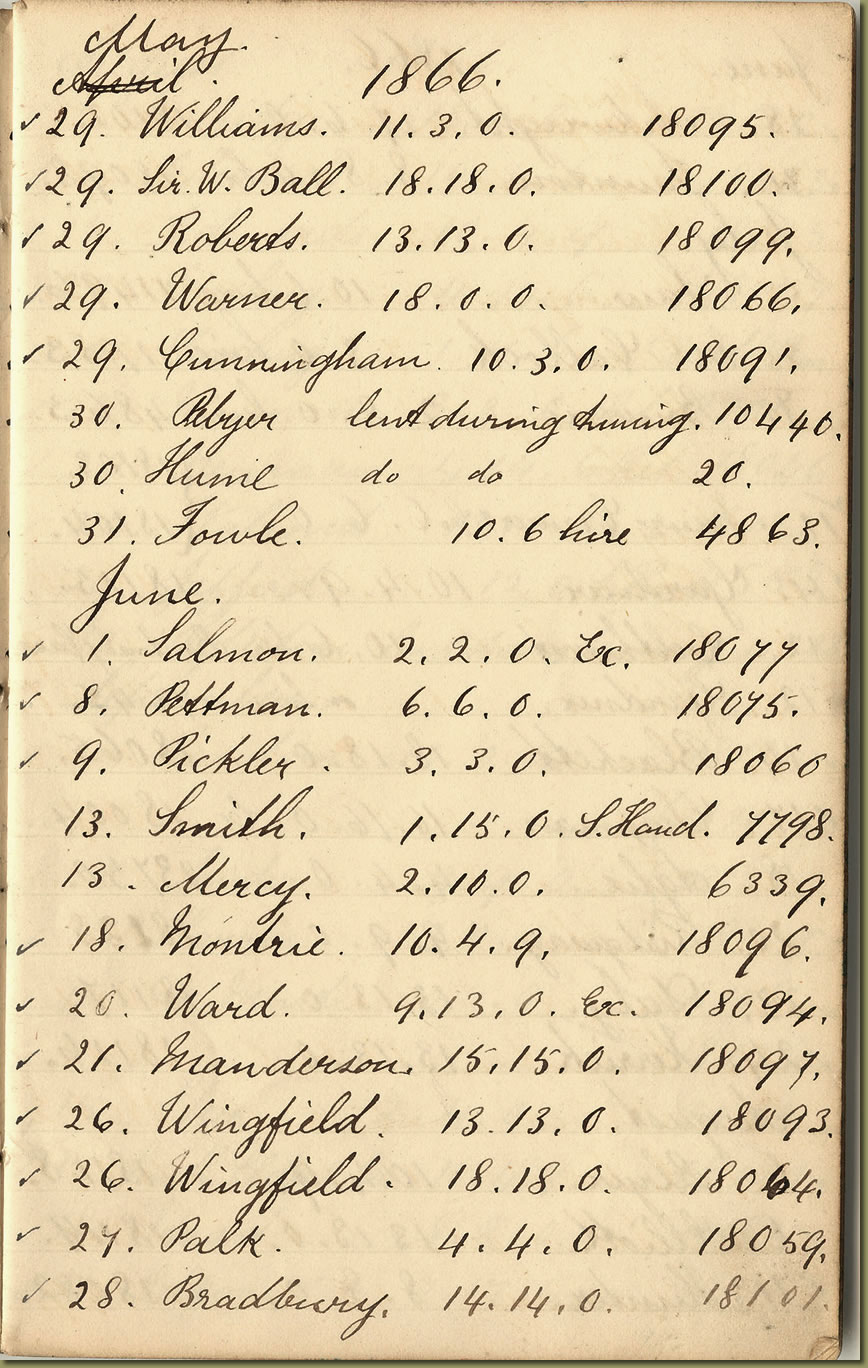 May.
April. 1866.
✓ 29. Williams. 11. 3. 0. 18095.
✓ 29. Sir. W. Ball. 18. 18. 0. 18100.
✓ 29. Roberts. 13. 13. 0. 18099.
✓ 29. Warner. 18. 0. 0. 18066.
✓ 29. Cunningham. 10. 3. 0. 18091.
30. lent during tuning. 10440.
30. Hume do do 20.
31. Fowle. 10. 6 hire 4863.
June.
✓ 1. Salmon. 2. 2. 0. Ec. 18077
✓ 8. Pettman. 6. 6. 0. 18075.
✓ 9. Pickler. 3. 3. 0. 18060
13. Smith. 1. 15. 0. S. Hand. 7798.
13. Mercy. 2. 10. 0. 6339.
✓ 18. Montrie. 10. 4. 9. 18096.
✓ 20. Ward. 9. 13. 0. Ec. 18094.
✓ 21. Manderson. 15. 15. 0. 18097.
✓ 26. Wingfield. 13. 13. 0. 18093.
✓ 26. Wingfield. 18. 18. 0. 18064.
✓ 27. Palk. 4. 4. 0. 18059.
✓ 28. Bradbury. 14. 14. 0. 18101.